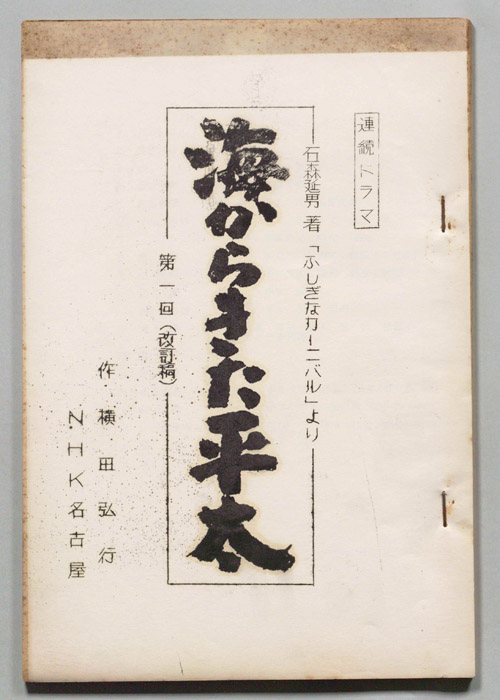 連続ドラマ
石森延男 著「ふしぎなカーニバル」より
海からきた平太
第一回(改訂稿)
作 横田弘行
NHK名古屋